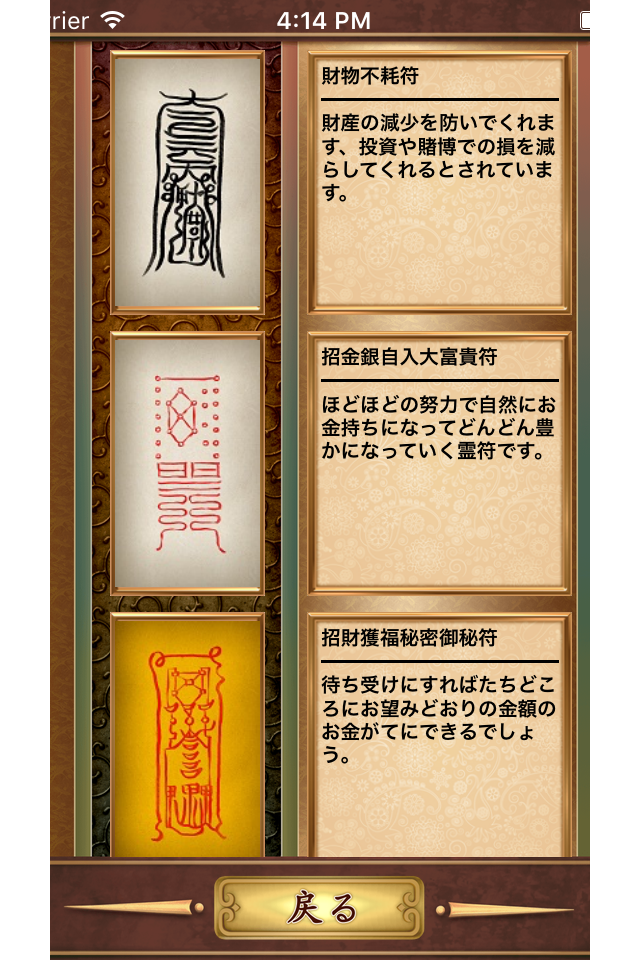 rrier 4:14 PM
財物不耗符
財産の減少を防いでくれま
す、投資や賭博での損を減
らしてくれるとされていま
す。
招金銀自入大富貴符
ほどほどの努力で自然にお
金持ちになってどんどん豊
かになっていく霊符です。
招財獲福秘密御秘符
待ち受けにすればたちどこ
ろにお望みどおりの金額の
お金がてにできるでしょ
う。
戻る